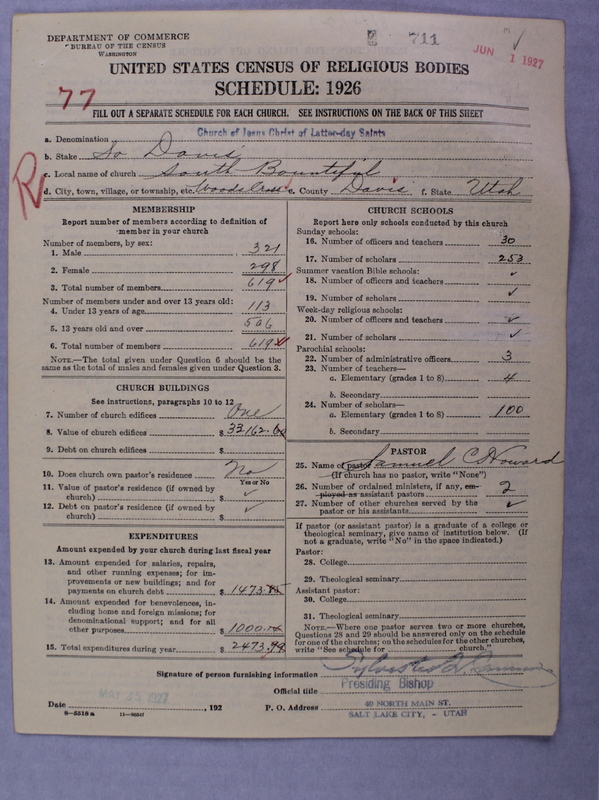 DEPARTMENT OF COMMERCE
BUREAU OF THE CENSUS
WASHINGTON
711
JUN 1 1927
UNITED STATES CENSUS OF RELIGIOUS BODIES
SCHEDULE: 1926
77
FILL OUT A SEPARATE SCHEDULE FOR EACH CHURCH. SEE INSTRUCTIONS ON THE BACK OF THIS SHEET
R
a. Denomination Church of Jesus Christ of Latter-day Saints
b. Stake So Davis
c. Local name of church South Bountiful
d. City, town, village, or township, etc. Woods Cross e. County Davis f. State Utah
MEMBERSHIP
Report number of members according to definition of member in your church
Number of members, by sex:
1. Male 321
2. Female 298
3. Total number of members 619
Number of members under and over 13 years old:
4. Under 13 years of age 113
5. 13 years old and over 506
6. Total number of members 619
NOTE.—The total given under Question 6 should be the
same as the total of males and females given under Question 3.
CHURCH BUILDINGS
See instructions, paragraphs 10 to 12
7. Number of church edifices One
8. Value of church edifices $ 33,162.60
9. Debt on church edifices $
10. Does church own pastor's residence No
Yes or No
11. Value of pastor's residence (if owned by
church) $ ✓
12. Debt on pastor's residence (if owned by
church) $ ✓
EXPENDITURES
Amount expended by your church during last fiscal year
13. Amount expended for salaries, repairs,
and other running expenses; for im-
provements or new buildings; and for
payments on church debt $ 1473.
14. Amount expended for benevolences, in-
cluding home and foreign missions; for
denominational support; and for all
other purposes $ 1000.
15. Total expenditures during year $ 2473.99
CHURCH SCHOOLS
Report here only schools conducted by this church
Sunday schools:
16. Number of officers and teachers 30
17. Number of scholars 253
Summer vacation Bible schools:
18. Number of officers and teachers ✓
19. Number of scholars ✓
Week-day religious schools:
20. Number of officers and teachers ✓
21. Number of scholars ✓
Parochial schools:
22. Number of administrative officers 3
23. Number of teachers—
a. Elementary (grades 1 to 8) 4
b. Secondary
24. Number of scholars—
a. Elementary (grades 1 to 8) 100
b. Secondary
PASTOR
25. Name of pastor Samuel C Howard
(If church has no pastor, write "None")
26. Number of ordained ministers, if any, em-
ployed as assistant pastors 2
27. Number of other churches served by the
pastor or his assistants ✓
If pastor (or assistant pastor) is a graduate of a college or
theological seminary, give name of institution below. (If
not a graduate, write "No" in the space indicated.)
Pastor:
28. College
29. Theological seminary
Assistant pastor:
30. College
31. Theological seminary
NOTE.—Where one pastor serves two or more churches,
Questions 28 and 29 should be answered only on the schedule
for one of the churches; on the schedules for the other churches,
write "See schedule for church."
Signature of person furnishing information Sylvester Q. Cannon
Official title Presiding Bishop
Date MAY 25 1927, 192 P. O. Address 40 NORTH MAIN ST.
SALT LAKE CITY, - UTAH
8—5518 a